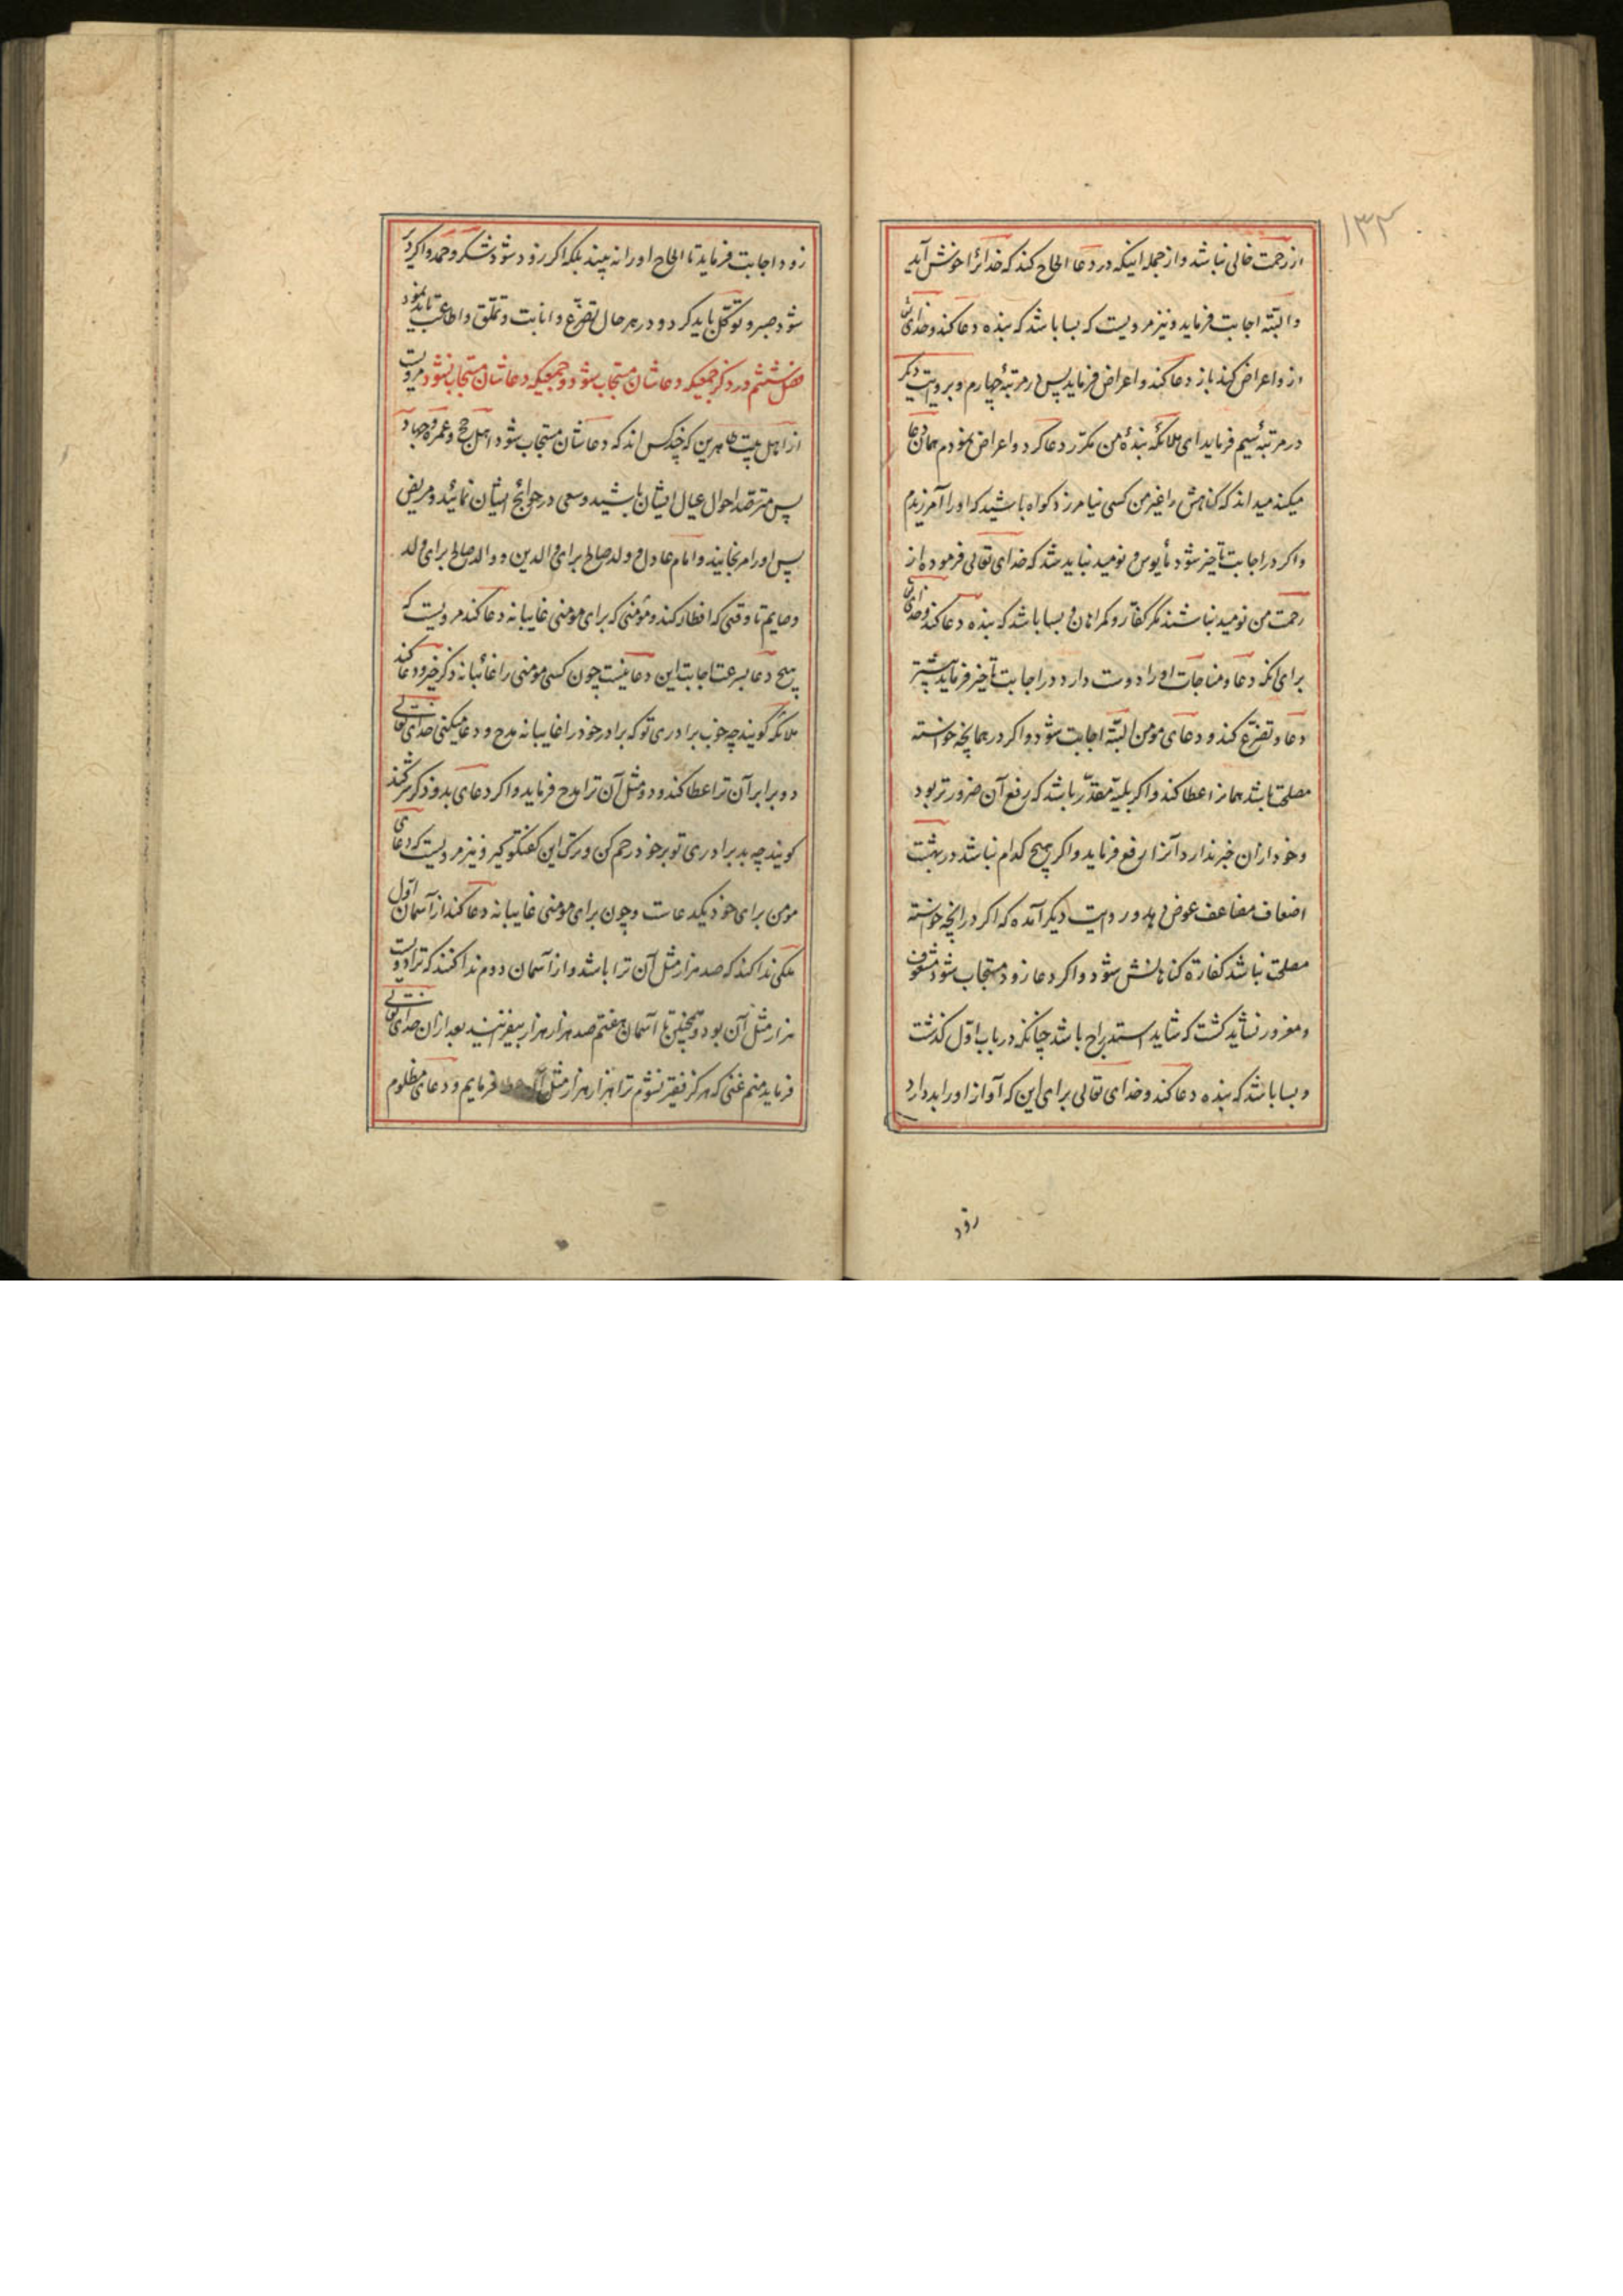 ۱۳۲
از رحمت خالی نباشد و از جمله اینکه در دعا الحاح کند که خدائرا خوش آید
و البتّه اجابت فرماید و نیز مرویست که بسا باشد که بنده دعا کند و خدای تعالی
ازو اعراض کند باز دعا کند و اعراض فرماید پس در مرتبهٔ چهارم و بروایت دیگر
در مرتبهٔ سیم فرماید ای ملائکه بندهٔ من مکرّر دعا کرد و اعراض نمودم همان دعا
میکند میداند که گناهش را غیر من کسی نیامرزد کواه باشید که او را آمرزیدم
و اکر در اجابت تأخیر شود مأیوس و نومید نباید شد که خدای تعالی فرموده از
رحمت من نومید نباشند مکر کفّار و کمراهان و بسا باشد که بنده دعا کند و خدای تعالی
برای انکه دعا و مناجات او را دوست دارد در اجابت تأخیر فرماید تا بیشتر
دعا و تضرّع کند و دعای مومن البتّه اجابت شود و اکر در همانچه خواسته
مصلحت باشد همانرا عطا کند و اکر بلیّه مقدّر باشد که رفع آن ضرورتر بود
و خود ازان خبر ندارد آنرا رفع فرماید و اکر هیچ کدام نباشد در بهشت
اضعاف مضاعف عوض دهد و در روایت دیکر آمده که اکر در انچه خواسته
مصلحت نباشد کفارهٔ کناهانش شود و اکر دعا زود مستجاب شود مشعوف
و مغرور نشاید کشت که شاید استدراج باشد چنانکه در باب اوّل کذشت
و بسا باشد که بنده دعا کند و خدای تعالی برای این که آواز او را بد دارد
زود
زود اجابت فرماید تا الحاح او را نه بیند بلکه اکر زود شود شکر و حمد و اکر دیر
شود صبر و توکّل باید کرد و در هر حال تضرّع و انابت و تملّق و اطاعت باید نمود
فصل ششم در ذکر جمعیکه دعاشان مستجاب شود و جمعیکه دعاشان مستجاب نشود مرویست
از اهل بیت طاهرین که چند کس اند که دعاشان مستجاب شود اهل حج و عمره و جهاد
پس مترصّد احوال عیال ایشان باشید و سعی در حوائج ایشان نمائید و مریض
پس او را مرنجانید و امام عادل و ولد صالح برای والدین و والد صالح برای ولد
و صایم تا وقتی که افطار کند و مؤمنی که برای مومنی غایبانه دعا کند مرویست که
هیچ دعا بسرعت اجابت این دعا نیست چون کسی مومنی را غائبانه ذکر خیر و دعا کند
ملائکه کویند چه خوب برادری تو که برادر خود را غایبانه مدح و دعا میکنی خدای تعالی
دو برابر آن ترا عطا کند و دو مثل آن ترا مدح فرماید و اکر دعای بد و ذکر شر کند
کویند چه بد برادری تو بر خود رحم کن و ترک این کفتکو کیر و نیز مرویست که دعای
مومن برای خود یکدعاست و چون برای مومنی غایبانه دعا کند از آسمان اوّل
ملکی ندا کند که صد هزار مثل آن ترا باشد و از آسمان دوم ندا کنند که ترا دویست
هزار مثل آن بود و همچنین تا آسمان هفتم صد هزار هزار بیفزایند بعد ازان خدای تعالی
فرماید منم غنی که هرکز فقیر نشوم ترا هزار هزار مثل آن عطا فرمایم و دعای مظلوم